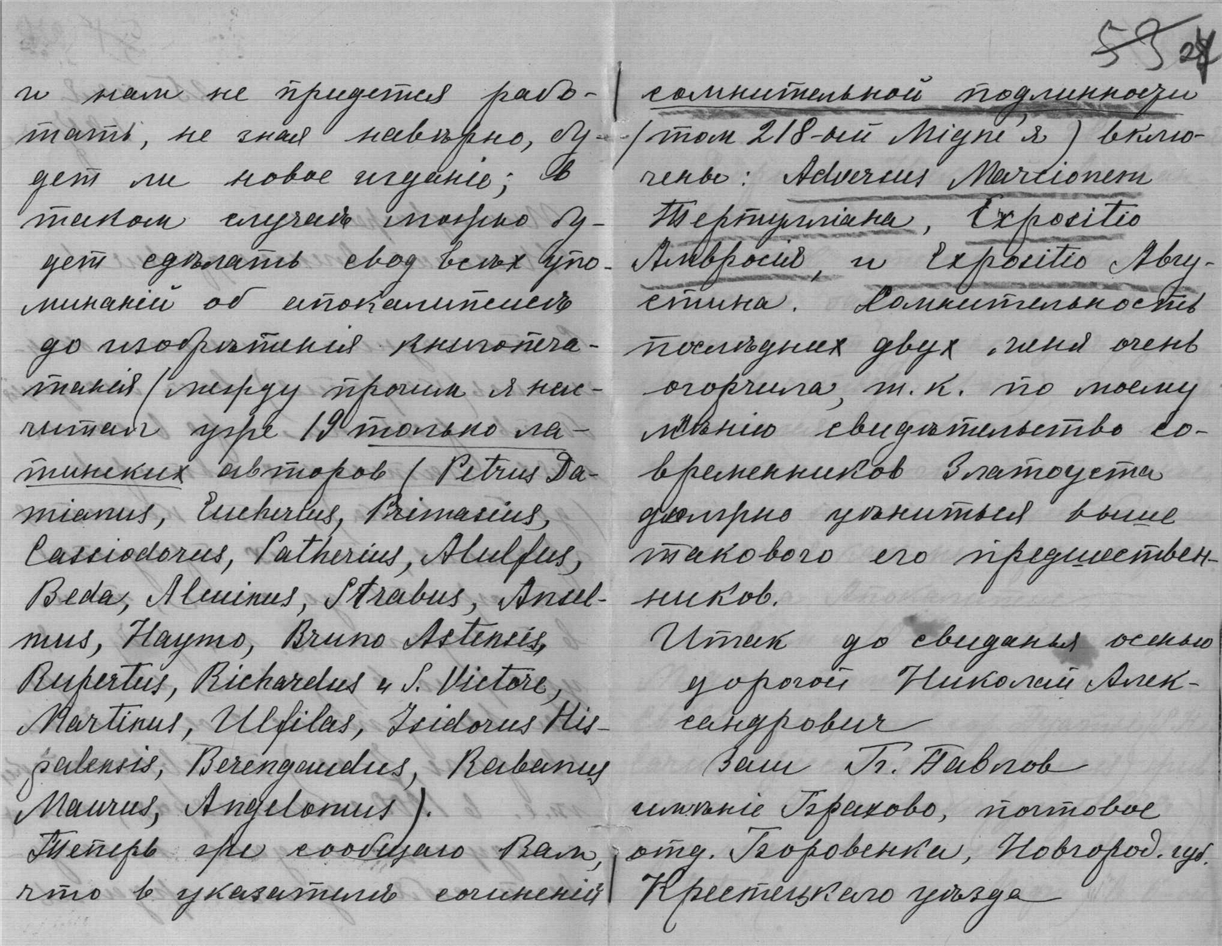 и нам не придется рабо-
тать, не зная навѣрно, бу-
дет ли новое изданіе; в
таком случаѣ можно бу-
дет сдѣлать свод всѣх упо-
минаній об апокалипсисѣ
до изобрѣтенія книгопеча-
танія (между прочим я нас-
читал уже 19 только ла-
тинских авторов (Petrus Da-
mianus, Eucherius, Primasius,
Cassiodorus, Patherius, Alulfus,
Beda, Alcuinus, Strabus, Ansel-
mus, Haymo, Bruno Astensis,
Rupertus, Richardus и S. Victore,
Martinus, Ulfilas, Isidorus His-
palensis, Berengaudus, Rabanus
Maurus, Angelomus).
Теперь же сообщаю Вам,
что в указателѣ сочиненій
59 27
сомнительной подлинности
(том 218-ый Migne'я) вклю-
чены: Adversus Marcionem
Тертулліана, Expositio
Амвросія, и Expositio Авгу-
стина. Сомнительность
послѣдних двух меня очень
огорчила, т. к. по моему
мнѣнію свидѣтельство со-
временников Златоуста
должно цѣниться выше
такового его предшествен-
ников.
Итак до свиданья осенью
дорогой Николай Алек-
сандрович
Ваш Г. Павлов
имѣніе Брахово, почтовое
отд. Боровенка, Новгород. губ.
Крестецкаго уѣзда